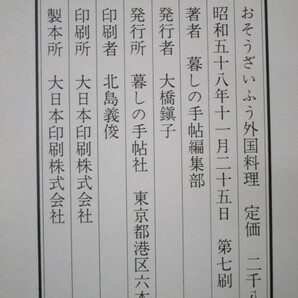 おそうざいふう外国料理　定価　二千
昭和五十八年十一月二十五日　第七刷
著者　暮しの手帖編集部
発行者　大橋鎭子
発行所　暮しの手帖社　東京都港区六本
印刷者　北島義俊
印刷所　大日本印刷株式会社
製本所　大日本印刷株式会社